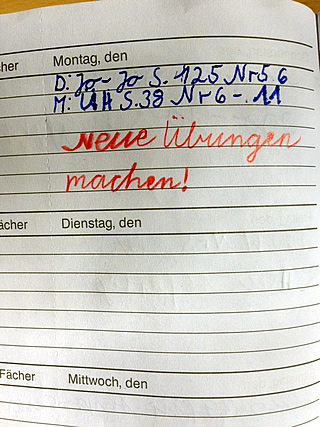 cher Montag, den
D: Jo-Jo S. 125 Nr 5 6
M: ÜH S. 38 Nr 6 - 11
Neue Übungen
machen!
ächer Dienstag, den
Fächer Mittwoch, den